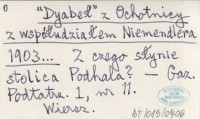 "Dyabeł" z Ochotnicy
z współudziałem Niemendlera
1903... Z czego słynie
stolica Podhala? – Gaz.
Podtatrz. 1, nr 11.
Wiersz.
BT/013/0406